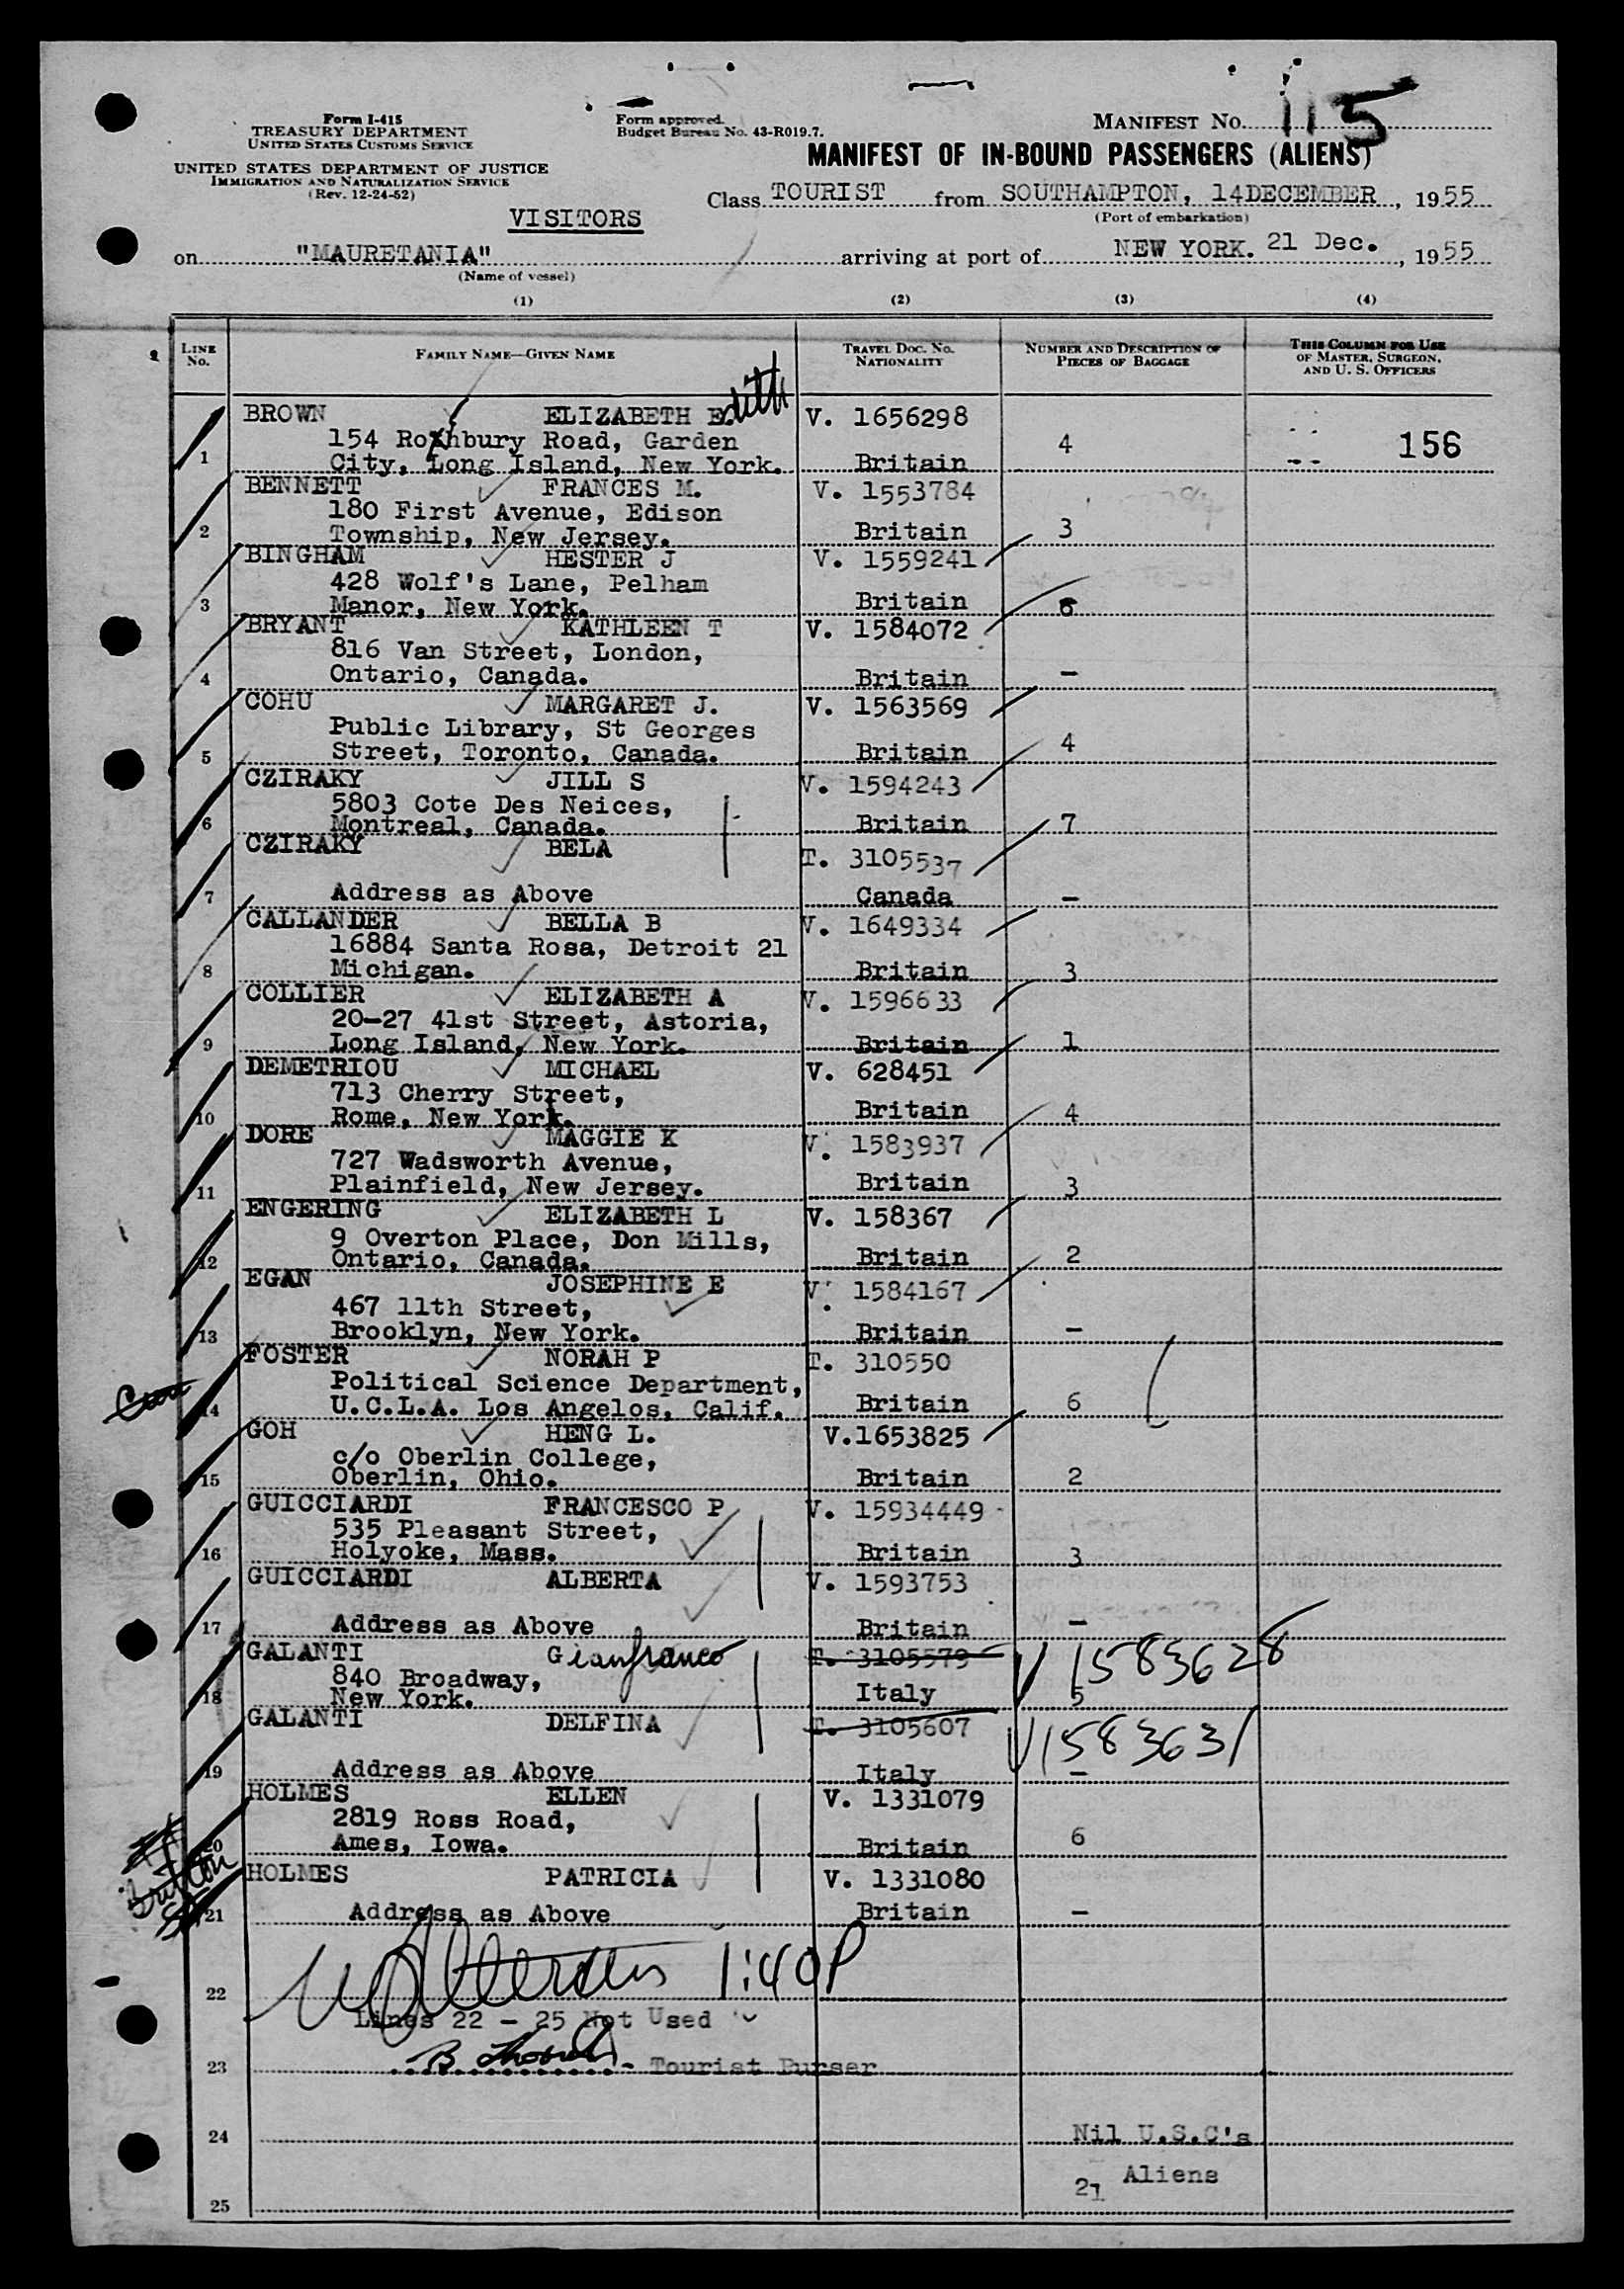 Form I-415
TREASURY DEPARTMENT
UNITED STATES CUSTOMS SERVICE
UNITED STATES DEPARTMENT OF JUSTICE
IMMIGRATION AND NATURALIZATION SERVICE
(Rev. 12-24-52)
Form approved.
Budget Bureau No. 43-R019.7.
MANIFEST NO. 115
MANIFEST OF IN-BOUND PASSENGERS (ALIENS)
Class TOURIST from SOUTHAMPTON, 14DECEMBER, 1955
(Port of embarkation)
VISITORS
on "MAURETANIA" arriving at port of NEW YORK. 21 Dec., 1955
(Name of vessel)
(1) (2) (3) (4)
LINE NO. FAMILY NAME—GIVEN NAME TRAVEL DOC. NO. NATIONALITY NUMBER AND DESCRIPTION OF PIECES OF BAGGAGE THIS COLUMN FOR USE OF MASTER, SURGEON, AND U. S. OFFICERS
BROWN ELIZABETH E. dith V. 1656298
154 Roxhbury Road, Garden 4 156
1 City, Long Island, New York. Britain
BENNETT FRANCES M. V. 1553784
180 First Avenue, Edison
2 Township, New Jersey. Britain 3
BINGHAM HESTER J V. 1559241
428 Wolf's Lane, Pelham
3 Manor, New York. Britain 6
BRYANT KATHLEEN T V. 1584072
816 Van Street, London,
4 Ontario, Canada. Britain —
COHU MARGARET J. V. 1563569
Public Library, St Georges
5 Street, Toronto, Canada. Britain 4
CZIRAKY JILL S V. 1594243
5803 Cote Des Neices,
6 Montreal, Canada. Britain 7
CZIRAKY BELA T. 3105537
7 Address as Above Canada —
CALLANDER BELLA B V. 1649334
16884 Santa Rosa, Detroit 21
8 Michigan. Britain 3
COLLIER ELIZABETH A V. 1596633
20-27 41st Street, Astoria,
9 Long Island, New York. Britain 1
DEMETRIOU MICHAEL V. 628451
713 Cherry Street,
10 Rome, New York. Britain 4
DORE MAGGIE K V. 1583937
727 Wadsworth Avenue,
11 Plainfield, New Jersey. Britain 3
ENGERING ELIZABETH L V. 158367
9 Overton Place, Don Mills,
12 Ontario, Canada. Britain 2
EGAN JOSEPHINE E V. 1584167
467 11th Street,
13 Brooklyn, New York. Britain —
FOSTER NORAH P T. 310550
Political Science Department,
14 U.C.L.A. Los Angelos, Calif. Britain 6
GOH HENG L. V.1653825
c/o Oberlin College,
15 Oberlin, Ohio. Britain 2
GUICCIARDI FRANCESCO P V. 15934449
535 Pleasant Street,
16 Holyoke, Mass. Britain 3
GUICCIARDI ALBERTA V. 1593753
17 Address as Above Britain —
GALANTI Gianfranco T. 3105579 V 1583628
840 Broadway,
18 New York. Italy 5
GALANTI DELFINA T. 3105607 V1583631
19 Address as Above Italy —
HOLMES ELLEN V. 1331079
2819 Ross Road,
20 Ames, Iowa. Britain 6
HOLMES PATRICIA V. 1331080
21 Address as Above Britain —
1:40P
22
Lines 22 - 25 Not Used
23 B. - Tourist Purser
24 Nil U.S.C's
21 Aliens
25